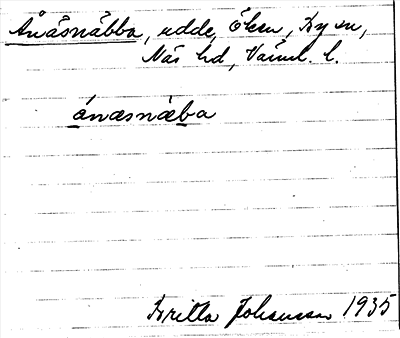 Ånäsnäbba, udde, Ölsen, By sn,
Näs hd, Värml. l.
ánæsnæba
Britta Johansson 1935